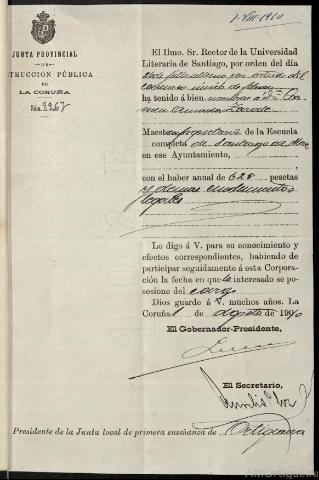 1-VIII-1910
JUNTA PROVINCIAL
DE
TRUCCIÓN PÚBLICA
DE
LA CORUÑA
Núm. 2267
El Ilmo. Sr. Rector de la Universidad
Literaria de Santiago, por orden del día
del
ha tenido á bien nombrar a D.ª Car-
men
Maestra propietaria de la Escuela
completa de Santiago de
en ese Ayuntamiento,
con el haber anual de 625 pesetas
y demas emolumentos
legales
Lo digo á V. para su conocimiento y
efectos correspondientes, habiendo de
participar seguidamente á esta Corporación
la fecha en que la interesado se posesione
del cargo
Dios guarde á V. muchos años. La
Coruña 1 de Agosto de 1910
El Gobernador-Presidente,
El Secretario,
Presidente de la Junta local de primera enseñanza de Ortigueira